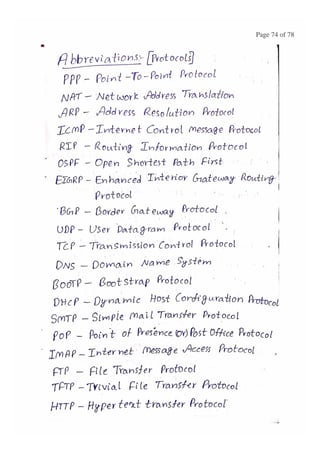 Page 74 of 78
Abbreviations:- [Protocols]
PPP - Point -To-Point Protocol
NAT - Network Address Translation
ARP - Address Resolution Protocol
ICMP - Internet Control Message Protocol
RIP - Routing Information Protocol
OSPF - Open Shortest Path First
EIGRP - Enhanced Interior Gateway Routing
Protocol
BGP - Border Gateway Protocol
UDP - User Datagram Protocol
TCP - Transmission Control Protocol
DNS - Domain Name System
BOOTP - Bootstrap Protocol
DHCP - Dynamic Host Configuration Protocol
SMTP - Simple Mail Transfer Protocol
POP - Point of Presence (or) Post Office Protocol
IMAP - Internet Message Access Protocol
FTP - File Transfer Protocol
TFTP - Trivial File Transfer Protocol
HTTP - Hyper text transfer Protocol